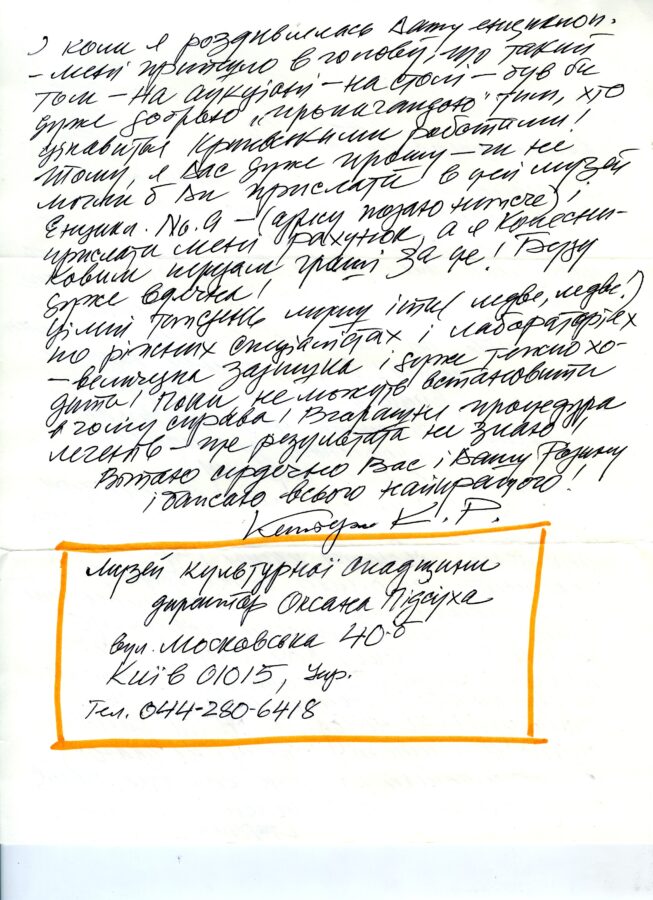 І коли я роздивлялась Вашу енциклоп.
– мені прийшло в голову, що такий
том – на аукціоні – на столі – був би
дуже доброю „пропагандою" тим, хто
цікавиться Кричевськими роботами!
Тому, я Вас дуже прошу – чи не
могли б Ви прислати в цей музей
Енцикл. No. 9 – (адресу подаю нижче) і
прислати мені рахунок, а я Колесни-
ковим передам гроші за це! Буду
дуже вдячна!
Цілий тиждень (ледве, ледве!)
по ріжних спеціялістах і лабораторіях
– величезна задишка і дуже тяжко хо-
дити! Поки не можуть встановити
в чому справа! Вчора процедура
легенів – ще результата не знаю!
Вітаю сердечно Вас і Вашу Родину
і бажаю всього найкращого!
К. Р.
Музей культурної спадщини
директор Оксана Підсуха
вул. Московська 40-б
Київ 01015, Укр.
Тел. 044-280-6418